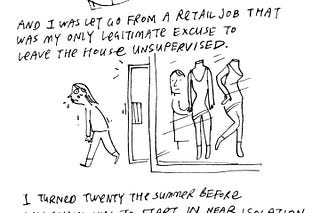 AND I WAS LET GO FROM A RETAIL JOB THAT
WAS MY ONLY LEGITIMATE EXCUSE TO
LEAVE THE HOUSE UNSUPERVISED.
I TURNED TWENTY THE SUMMER BEFORE
TO START IN NEAR ISOLATION